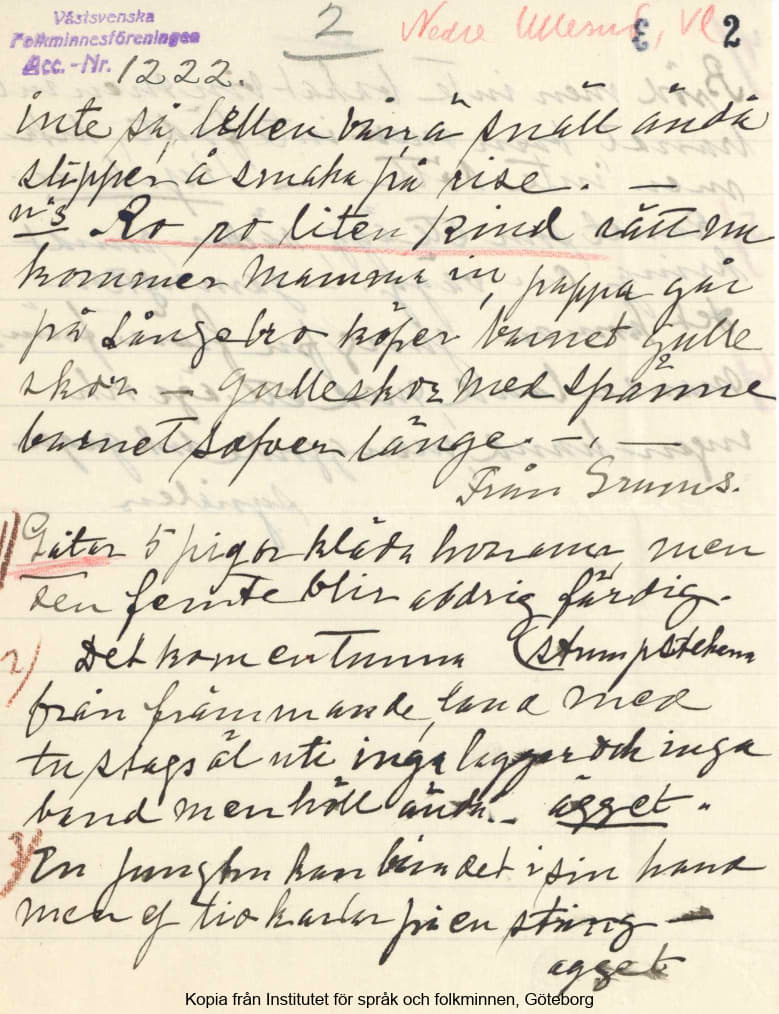 Västsvenska
Folkminnesföreningen
Acc.-Nr. 1222.
2
Nedre Ullerud, Vl
3
2
inte så, lillen vår, ä snäll ändå
slipper å smaka på rise. —
n:3 Ro ro liten kind rätt nu
kommer mamma in, pappa går
på Långebro köper barnet gulle
skor — gulleskor med spänne
barnet sofver länge. —. —
Från Grums.
1) Gåtor 5 pigor kläda honom, men
den femte blir aldrig färdig.
2) Det kom en tunna (strumpstickorna
från främmande land med
tu slags öl uti inga laggar och inga
band men höll ändå. — ägget.
3) En jungfru kan bära det i sin hand
men ej tio karlar på en stång —
ägget
Kopia från Institutet för språk och folkminnen, Göteborg